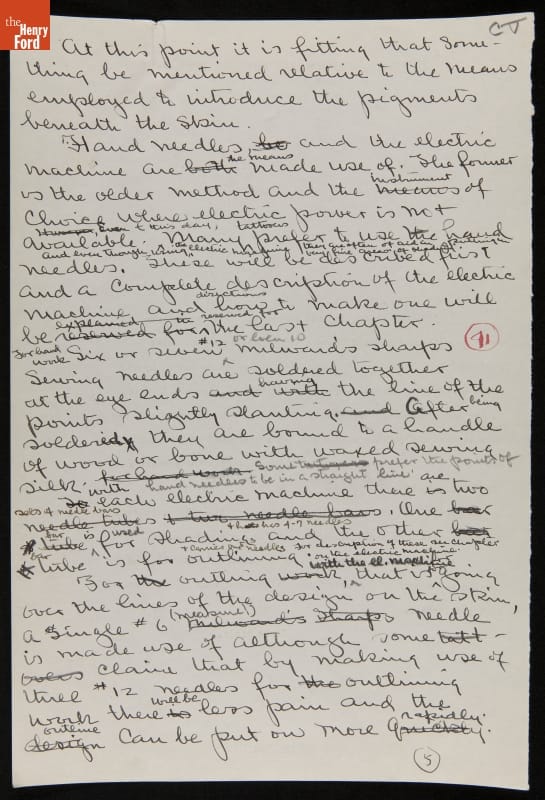 the
Henry
Ford
CT
At this point it is fitting that Some-
thing be mentioned relative to the means
employed to introduce the pigments
beneath the skin.
Hand needles, and the electric
the means
machine are both made use of. The former
instrument
is the older method and the means of
choice where electric power is not
However, Even to this day, tattooers
available. Many prefer to use the hand
and even though using the electric machine they are often of aid in putting in
needles. These will be described first
and a complete description of the electric
directions
machine and how to make one will
explained the reserved for
be reserved for the last chapter.
41
For hand #12 or even 10
work Six or seven Milward's sharps
Sewing needles are soldered together
having
at the eye ends and with the line of the
points slightly slanting, and After being
soldered they are bound to a handle
of wood or bone with waxed sewing
silk. for hand work Some prefer the points of
hand needles to be in a straight line
with each electric machine there are two
sets of needle bars
needle tubes & two needle bars. One bar
bar is used & has 4-7 needles
tube for shading and the other bar
bar & carries needles for description of these see chapter
on the electric machine.
tube is for outlining with the el. machine
For the outling work, that is going
over the lines of the design on the skin,
(measure!)
a single #6 Milward's sharps needle
is made use of although some tatt-
ooers claim that by making use of
three #12 needles for the outlining
will be
work there is less pain and the
outline rapidly.
design can be put on more quickly.
5